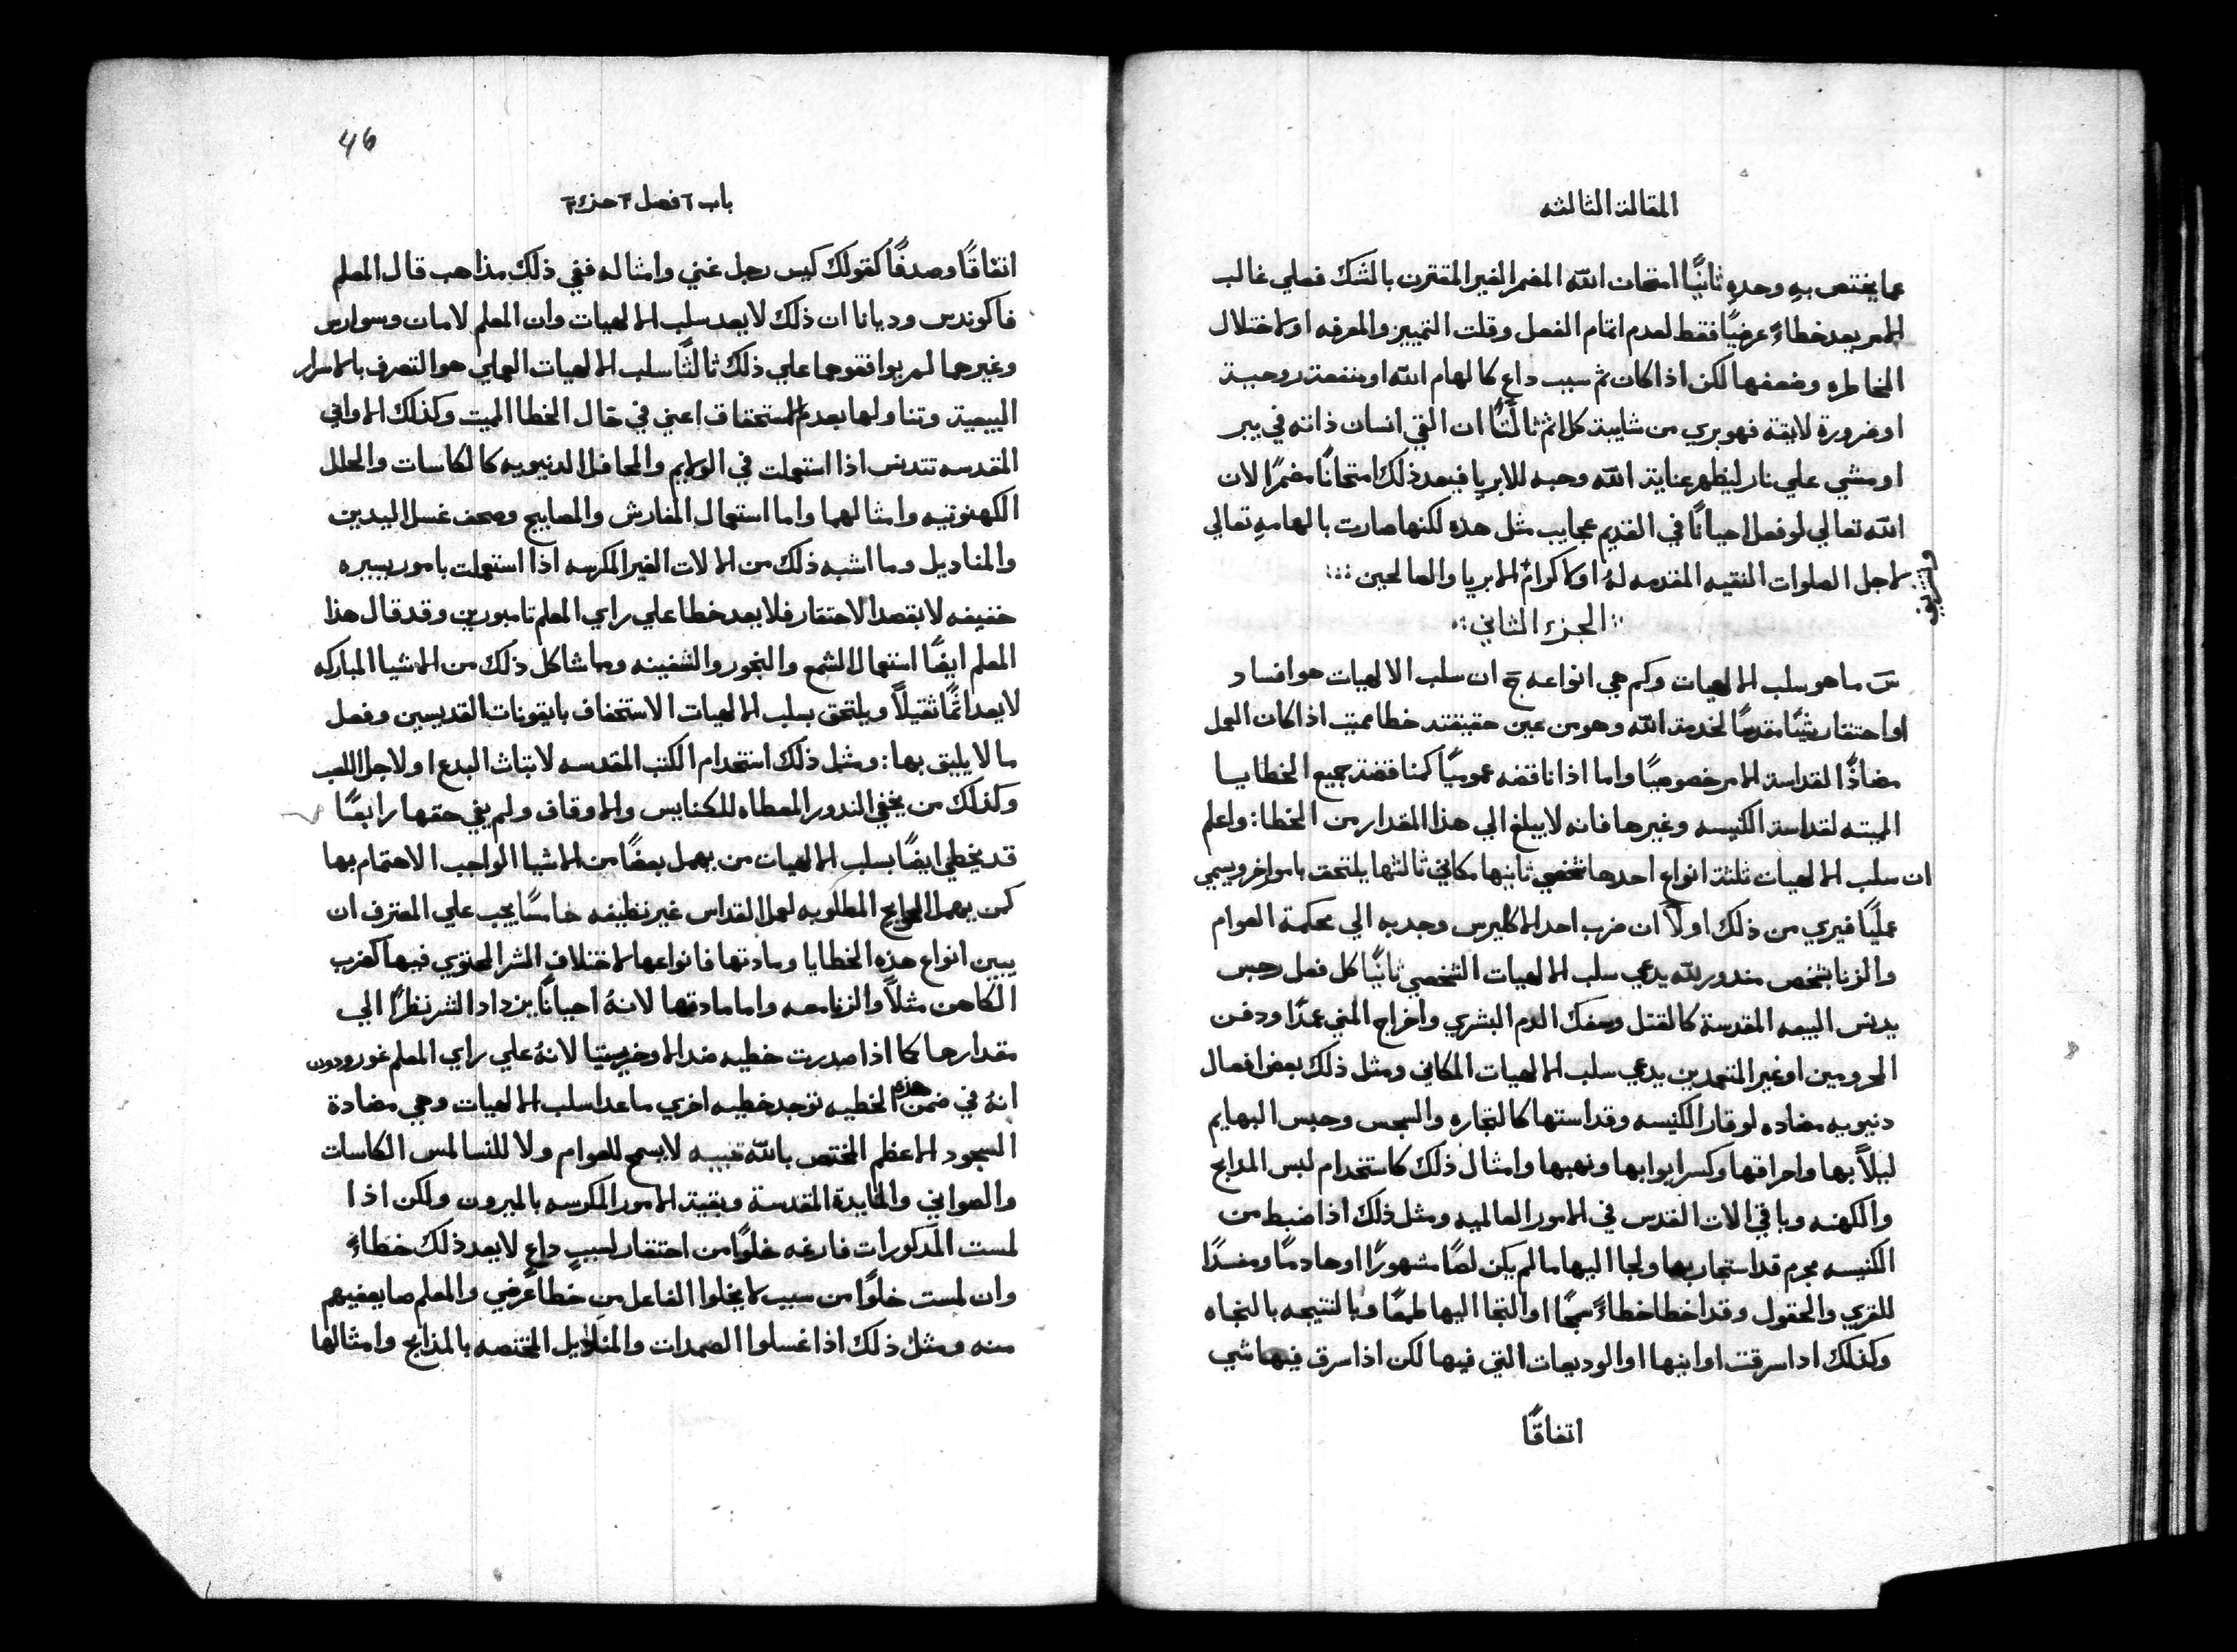 المقالة الثالثه
عما يختص به وحدهِ ثانيًا امتحان اللّه المضمر الغير المقترن بالشك فعلي غالب
الامر يعد خطاءً عرضيًا فقط لعدم اتمام الفعل وقلت التمييز والمعرفه او لاختلال
المخاطره وضعفها لكن اذا كان ثم سبب داعٍ كالهام اللّه او منفعة روحية
او ضرورة لايقة فهو بري من شايبة كل اثم ثالثًا ان القي انسان ذاته في بير
او مشي علي نار ليظهر عناية اللّه وحبه للابريا فيعد ذلك امتحانًا مضمرًا لان
اللّه تعالي لو فعل احيانًا في القديم عجايب مثل هذه لكنها صارت بالهامهِ تعالي
لاجل الصلوات النقيه المقدمه لهُ او لاكرام الابريا والصالحين
الجزء الثاني
سَ ما هو سلب الالهيات وكم هي انواعه جَ ان سلب الالهيات هو افساد
او احتقار شيئًا مقدسًا لخدمة اللّه وهو من عين حقيقته خطا مميت اذا كان العمل
مضادًا لقداسة الامر خصوصيًا واما اذا ناقضه عموميًا كمناقضة جميع الخطايا
المميته لقداسة الكنيسه وغيرها فانه لا يبلغ الي هذا المقدار من الخطا: واعلم
ان سلب الالهيات ثلثة انواع احدها شخصي ثانيها مكاني ثالثها يلتحق بامور اخر ويسمي
عمليًا فيري من ذلك اولاً ان ضرب احد الاكليرس وجدبه الي محكمة العوام
والزنا بشخص مندور للّه يدعي سلب الالهيات الشخصي ثانيًا كل فعل رجس
يدنس البيعه المقدسة كالقتل وسفك الدم البشري واخراج المني عمدًا ودفن
المحرومين او غير المتعمدين يدعي سلب الالهيات المكاني ومثل ذلك بعض افعال
دنيويه مضاده لوقار الكنيسه وقداستها كالتجاره والسجس وحبس البهايم
ليلاً بها واحراقها وكسر ابوابها ونهبها وامثال ذلك كاستخدام لبس المدابح
والكهنه وباقي الات القدس في الامور العالميه ومثل ذلك اذا ضبط من
الكنيسه مجرم قد استجار بها ولجا اليها ما لم يكن لصًا مشهورًا او هادمًا ومفسدًا
للقري والحقول وقد اخطا خطاءً سمجًا او التجا اليها طمعًا وبالنتيجه بالنجاه
وكذلك ادا سرقت اوانيها او الوديعات التي فيها لكن اذا سرق فيها شي
اتفاقًا
46
باب ٦ فصل ٣ جزء ٢
اتفاقًا وصدفًا كقولك كيس رجل غني وامثاله ففي ذلك مذاهب قال المعلم
فاكوندس وديانا ان ذلك لا يعد سلب الالهيات وان المعلم لامان وسوارس
وغيرهما لم يوافقوهما علي ذلك ثالثًا سلب الالهيات العملي هو التصرف بالاسرار
البيعية وتناولها بعدم استحقاق اعني في حال الخطا المميت وكذلك الاواني
المقدسه تتدنس اذا استعملت في الولايم والمحافل الدنيويه كالكاسات والحلل
الكهنوتيه وامثالهما واما استعمال المفارش والمصابيح وصحف غسل اليدين
والمناديل وما اشبه ذلك من الالات الغير المكرسه اذا استعملت بامور يسيره
خفيفه لا بقصد الاحتقار فلا يعد خطا علي راي المعلم تامبورين وقد قال هذا
المعلم ايضًا استعمال الشمع والبخور والشفينه وما شاكل ذلك من الاشيا المباركه
لا يعد اثمًا ثقيلاً ويلتحق بسلب الالهيات الاستخفاف بايقونات القديسين وفعل
ما لا يليق بها: ومثل ذلك استخدام الكتب المقدسه لاثبات البدع او لاجل اللعب
وكذلك من يخفي الندور المعطاه للكنايس والاوقاف ولم يفي حقها رابعًا
قد يخطي ايضًا بسلب الالهيات من يهمل بعضًا من الاشيا الواجب الاهتمام بها
كمن يهمل الحوايج المطلوبه لعمل القداس غير نظيفه خامسًا يجب علي المعترف ان
يبين انواع هذه الخطايا ومادتها فانواعها لاختلاف الشر المحتوي فيها كضرب
الكاهن مثلاً والزنا معه واما مادتها لانهُ احيانًا يزداد الشر نظرًا الي
مقدارها كما اذا صدرت خطيه ضد الاوخرستيا لانهُ علي راي المعلم غورودون
انهُ في ضمن هذه الخطيه توجد خطيه اخري ماعدا سلب الالهيات وهي مضادة
السجود الاعظم المختص باللّه تنبيه لا يسمح للعوام ولا للنسا لمس الكاسات
والصواني والمايدة المقدسة وبقية الامور المكرسه بالميرون ولكن اذا
لمست المذكورات فارغه خلوًا من احتقار لسببٍ داعٍ لا يعد ذلك خطاءً
وان لمست خلوًا من سبب لا يخلوا الفاعل من خطا عرضي والمعلم صا يعفيهم
منه ومثل ذلك اذا غسلوا الصمدات والمناديل المختصه بالمذابح وامثالها